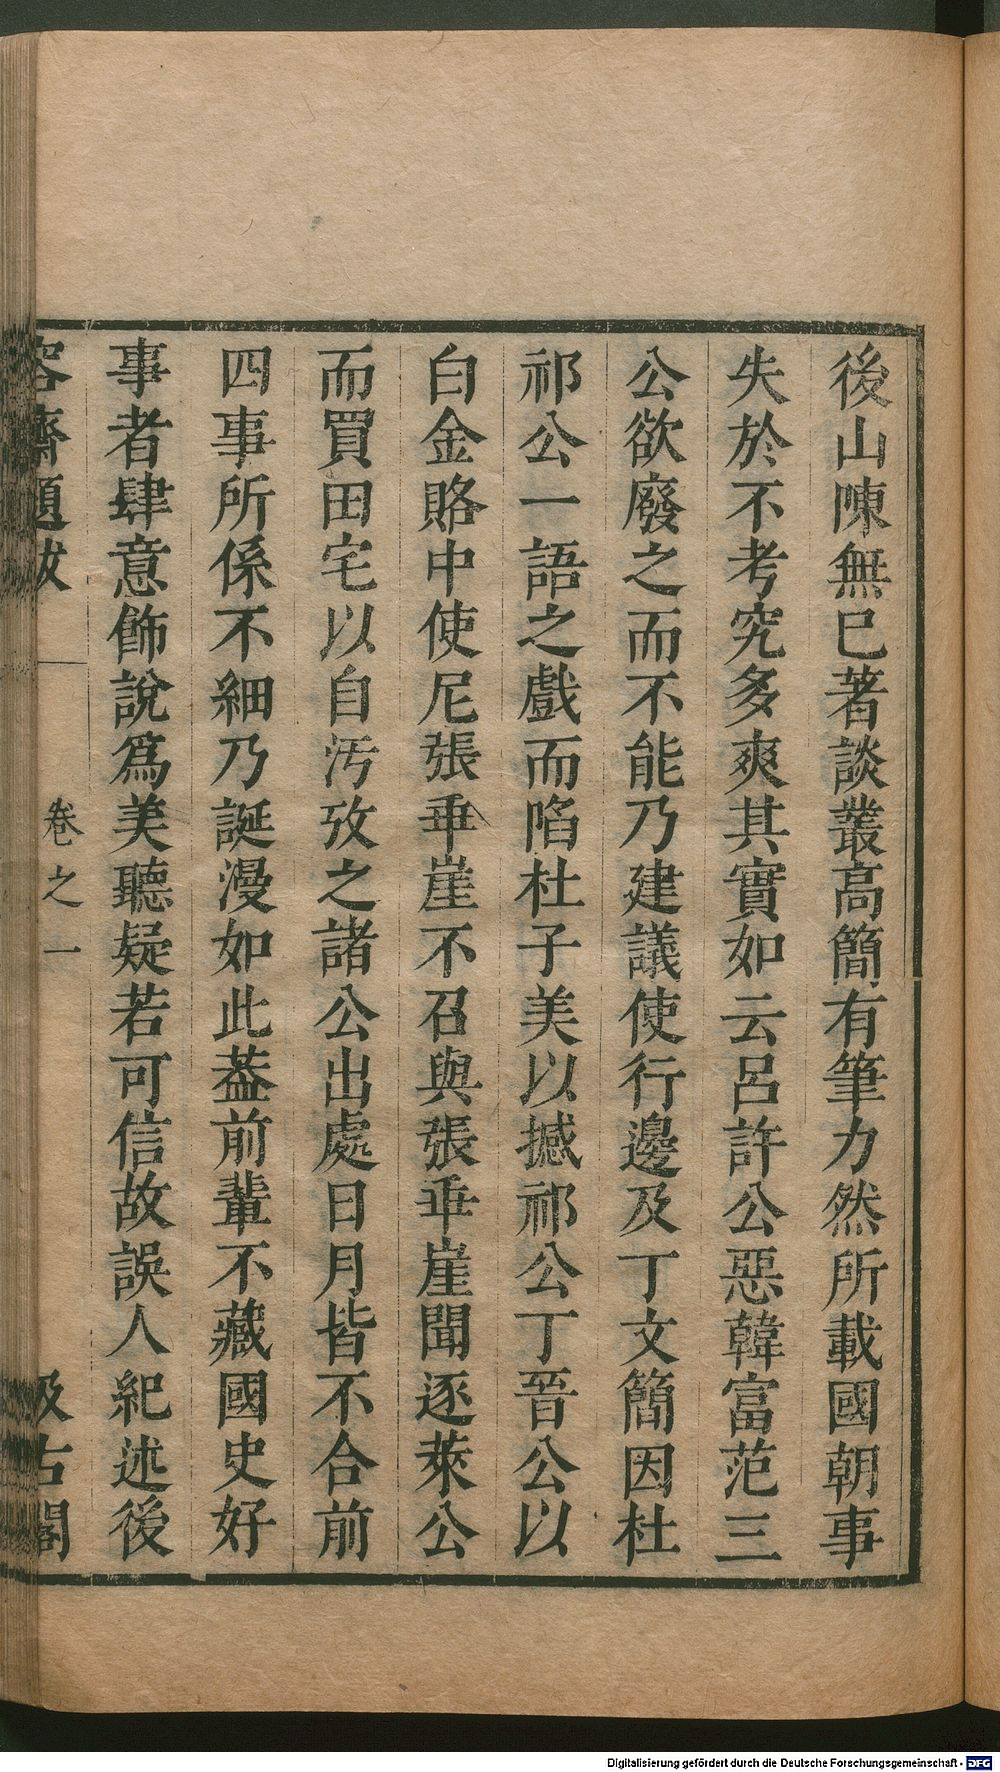 後山陳無已著談叢高簡有筆力然所載國朝事
失於不考究多爽其實如云呂許公惡韓富范三
公欲廢之而不能乃建議使行邊及丁文簡因杜
祁公一語之戲而陷杜子美以撼祁公丁晉公以
白金賂中使尼張乖崖不召與張乖崖聞逐萊公
而買田宅以自汚攷之諸公出處日月皆不合前
四事所係不細乃誕漫如此葢前輩不藏國史好
事者肆意飾說爲美聽疑若可信故誤人紀述後
容齋題跋 卷之一 汲古閣
Digitalisierung gefördert durch die Deutsche Forschungsgemeinschaft - DFG